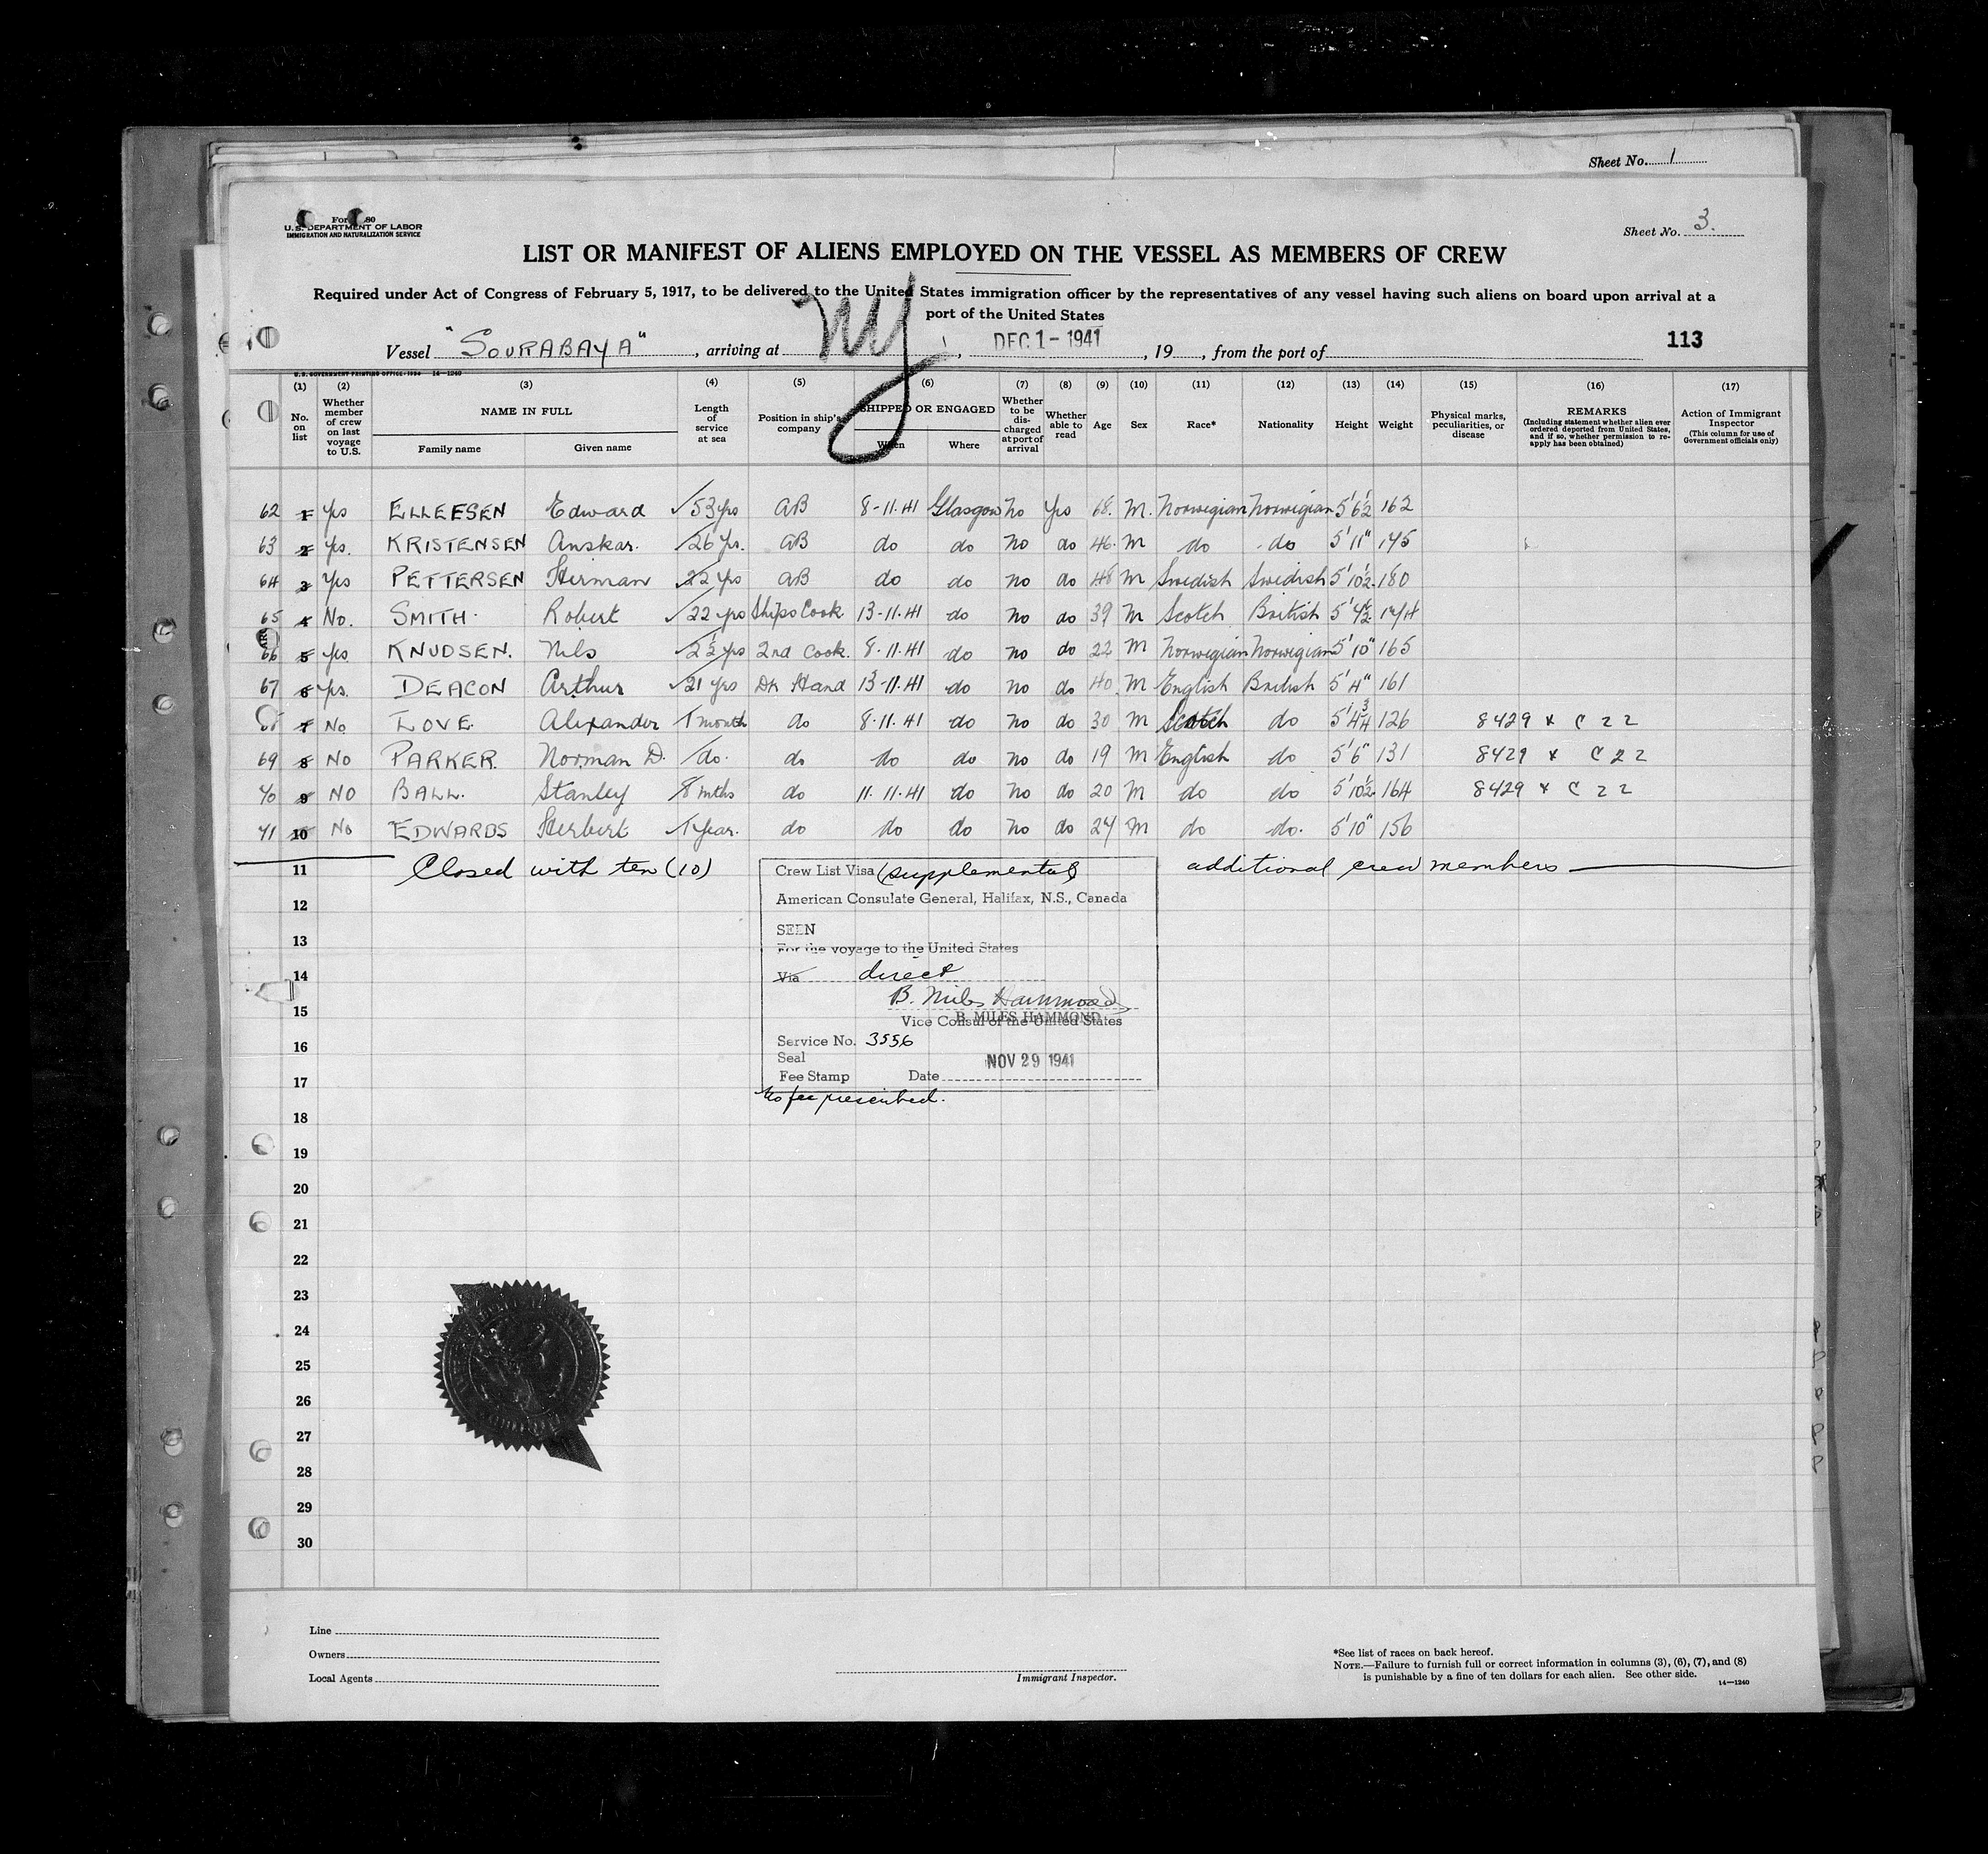 Sheet No. 1
Form 680
U.S. DEPARTMENT OF LABOR
IMMIGRATION AND NATURALIZATION SERVICE
Sheet No. 3.
LIST OR MANIFEST OF ALIENS EMPLOYED ON THE VESSEL AS MEMBERS OF CREW
Required under Act of Congress of February 5, 1917, to be delivered to the United States immigration officer by the representatives of any vessel having such aliens on board upon arrival at a
port of the United States
Vessel "SOURABAYA", arriving at NY, DEC 1 - 1941, 19, from the port of
113
U.S. GOVERNMENT PRINTING OFFICE 14—1240
(1) (2) (3) (4) (5) (6) (7) (8) (9) (10) (11) (12) (13) (14) (15) (16) (17)
No. on list
Whether member of crew on last voyage to U.S.
NAME IN FULL
Family name Given name
Length of service at sea
Position in ship's company
SHIPPED OR ENGAGED
When Where
Whether to be discharged at port of arrival
Whether able to read
Age
Sex
Race*
Nationality
Height
Weight
Physical marks, peculiarities, or disease
REMARKS
(Including statement whether alien ever ordered deported from United States, and if so, whether permission to reapply has been obtained)
Action of Immigrant Inspector
(This column for use of Government officials only)
62 1 Yes ELLEESEN Edward 53 yrs AB 8-11-41 Glasgow No Yes 68. M. Norwegian Norwegian 5'6½ 162
63 2 Yes. KRISTENSEN Anskar. 26 Yr. AB do do No do 46. M do do 5'11" 175
64 3 Yes PETTERSEN Herman 22 Yrs AB do do No do 48 M Swedish Swedish 5'10½ 180
65 4 No. SMITH. Robert 22 yrs Ships Cook 13-11-41 do No do 39 M Scotch British 5'4½ 174
66 5 Yes KNUDSEN. Nils 2½ yrs 2nd Cook. 8-11-41 do No do 22 M Norwegian Norwegian 5'10" 165
67 6 Yes. DEACON Arthur 21 Yrs Dk Hand 13-11-41 do No do 40. M English British 5'4" 161
68 7 No LOVE Alexander 1 month do 8-11-41 do No do 30 M Scotch do 5'4¾ 126 8429 x C 22
69 8 NO PARKER Norman D. do. do do do No do 19 M English do 5'6" 131 8429 x C 22
70 9 NO BALL. Stanley 8 mths do 11-11-41 do No do 20 M do do 5'10½ 164 8429 x C 22
71 10 No EDWARDS Herbert 1 year. do do do No do 24 M do do. 5'10" 156
11 Closed with ten (10) additional crew members
Crew List Visa (supplemental)
American Consulate General, Halifax, N.S., Canada
SEEN
For the voyage to the United States
Via direct
B. Miles Hammond
B. MILES HAMMOND
Vice Consul of the United States
Service No. 3556
Seal
NOV 29 1941
Fee Stamp Date
No fee prescribed.
12
13
14
15
16
17
18
19
20
21
22
23
24
25
26
27
28
29
30
Line
Owners
Local Agents
Immigrant Inspector.
*See list of races on back hereof.
NOTE.—Failure to furnish full or correct information in columns (3), (6), (7), and (8)
is punishable by a fine of ten dollars for each alien. See other side.
14—1240